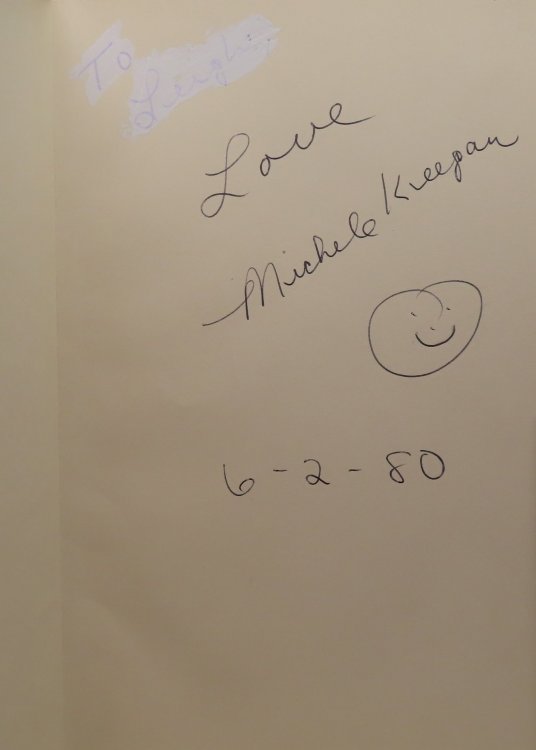 To
Leigh
Love
Michele Kreegan
6-2-80